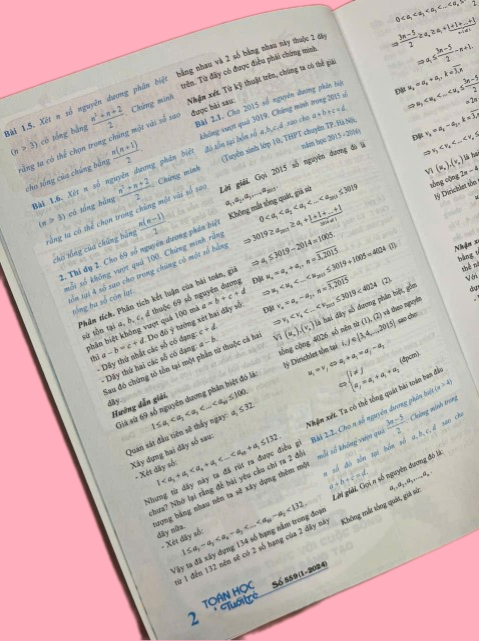 Bài 1.5. Xét n số nguyên dương phân biệt
(n > 3) có tổng bằng (n² + n + 2)/2. Chứng minh
rằng ta có thể chọn trong chúng một vài số sao
cho tổng của chúng bằng n(n+1)/2.
Bài 1.6. Xét n số nguyên dương phân biệt
(n > 3) có tổng bằng (n² + n + 2)/2. Chứng minh
rằng ta có thể chọn trong chúng một vài số sao
cho tổng của chúng bằng n(n-1)/2.
2. Thí dụ 2. Cho 69 số nguyên dương phân biệt
mỗi số không vượt quá 100. Chứng minh rằng
tồn tại 4 số sao cho trong chúng có một số bằng
tổng ba số còn lại.
Phân tích. Phân tích kết luận của bài toán, giả
sử tồn tại a, b, c, d thuộc 69 số nguyên dương
phân biệt không vượt quá 100 mà a = b + c + d
thì a − b = c + d. Do đó ý tưởng xét hai dãy số:
- Dãy thứ nhất các số có dạng: c + d.
- Dãy thứ hai các số có dạng: a − b.
Sau đó chứng tỏ tồn tại một phần tử thuộc cả hai
dãy.
Hướng dẫn giải.
Giả sử 69 số nguyên dương phân biệt đó là:
1 ≤ a₁ < a₂ < a₃ <...< a₆₉ ≤ 100.
Quan sát đầu tiên sẽ thấy ngay: a₁ ≤ 32.
Xây dựng hai dãy số sau:
- Xét dãy số:
1 < a₁ + a₃ < a₁ + a₄ <...< a₆₉ + a₁ ≤ 132.
Nhưng từ dãy này ta đã rút ra được điều gì
chưa? Nhớ lại rằng đề bài yêu cầu chỉ ra 2 đối
tượng bằng nhau nên ta sẽ xây dựng thêm một
dãy nữa.
- Xét dãy số:
1 ≤ a₃ − a₂ < a₄ − a₂ <...< a₆₉ − a₂ < 132.
Vậy ta đã xây dựng 134 số hạng nằm trong đoạn
từ 1 đến 132 nên sẽ có 2 số hạng của 2 dãy này
bằng nhau và 2 số bằng nhau này thuộc 2 dãy
trên. Từ đây có được điều phải chứng minh.
Nhận xét. Từ kỹ thuật trên, chúng ta có thể giải
được bài sau:
Bài 2.1. Cho 2015 số nguyên dương phân biệt
không vượt quá 3019. Chứng minh trong 2015 số
đó tồn tại bốn số a, b, c, d sao cho a + b + c = d.
(Tuyển sinh lớp 10, THPT chuyên TP. Hà Nội,
năm học 2015 - 2016)
Lời giải. Gọi 2015 số nguyên dương đó là
a₁, a₂, a₃,..., a₂₀₁₅.
Không mất tổng quát, giả sử
0 < a₁ < a₂ < a₃ <...< a₂₀₁₅ ≤ 3019
⇒ 3019 ≥ a₂₀₁₅ ≥ a₁ + 1+1+...+1
⇒ a₁ ≤ 3019 − 2014 = 1005
Đặt uₙ = a₁ + aₙ, n = 3,2015
⇒ u₃ < u₄ <...< u₂₀₁₅ ≤ 3019 + 1005 = 4024 (1).
Đặt vₙ = aₙ − a₂, n = 3,2015
⇒ v₃ < v₄ <...< v₂₀₁₅ ≤ 3019 < 4024 (2).
Vì (uₙ), (vₙ) là hai dãy số dương phân biệt, gồm
tổng cộng 4026 số nên từ (1), (2) và theo nguyên
lý Dirichlet tồn tại i, j ∈ {3,4,...,2015} sao cho:
uᵢ = vⱼ ⇔ a₁ + aᵢ = aⱼ − a₂
⇔ { i ≠ j
aⱼ = a₁ + a₂ + aᵢ (đpcm)
Nhận xét. Ta có thể tổng quát bài toán ban đầu
Bài 2.2. Cho n số nguyên dương phân biệt (n > 4)
mỗi số không vượt quá (3n−5)/2. Chứng minh trong
n số đó tồn tại bốn số a, b, c, d sao cho
a + b + c = d.
Lời giải. Gọi n số nguyên dương đó là:
a₁, a₂, a₃,..., aₙ.
Không mất tổng quát, giả sử:
2 TOÁN HỌC & Tuổi trẻ Số 559 (1-2024)
0 < a₁ < a₂ < a₃ <...< aₙ ≤
⇒ (3n−5)/2 ≥ aₙ ≥ a₁ + 1+1+...+1
⇒ a₁ ≤ (3n−5)/2 − n+1.
Đặt uₖ = a₁ + aₖ, k = 3,n
⇒ u₃ < u₄ <...< uₙ ≤ (3n−5)/2
= 2n
Đặt vₖ = aₖ − a₂, k = 3,n
⇒ v₃ < v₄ <...< vₙ ≤
Vì (uₖ), (vₖ) là hai
tổng cộng 2n − 4
lý Dirichlet tồn
Nhận xé